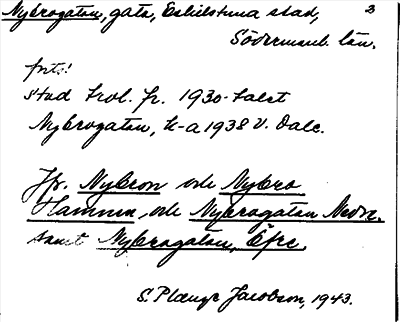 Nybrogatan, gata, Eskilstuna stad, 3
Södermanl. län.
stad trol. fr. 1930-talet
Nybrogatan, k-a 1938 V. Dalc.
Jfr. Nybron och Nybro
Hamnen, och Nybrogatan Nedre.
samt Nybrogatan, Öfre.
S. Jacobson, 1943.